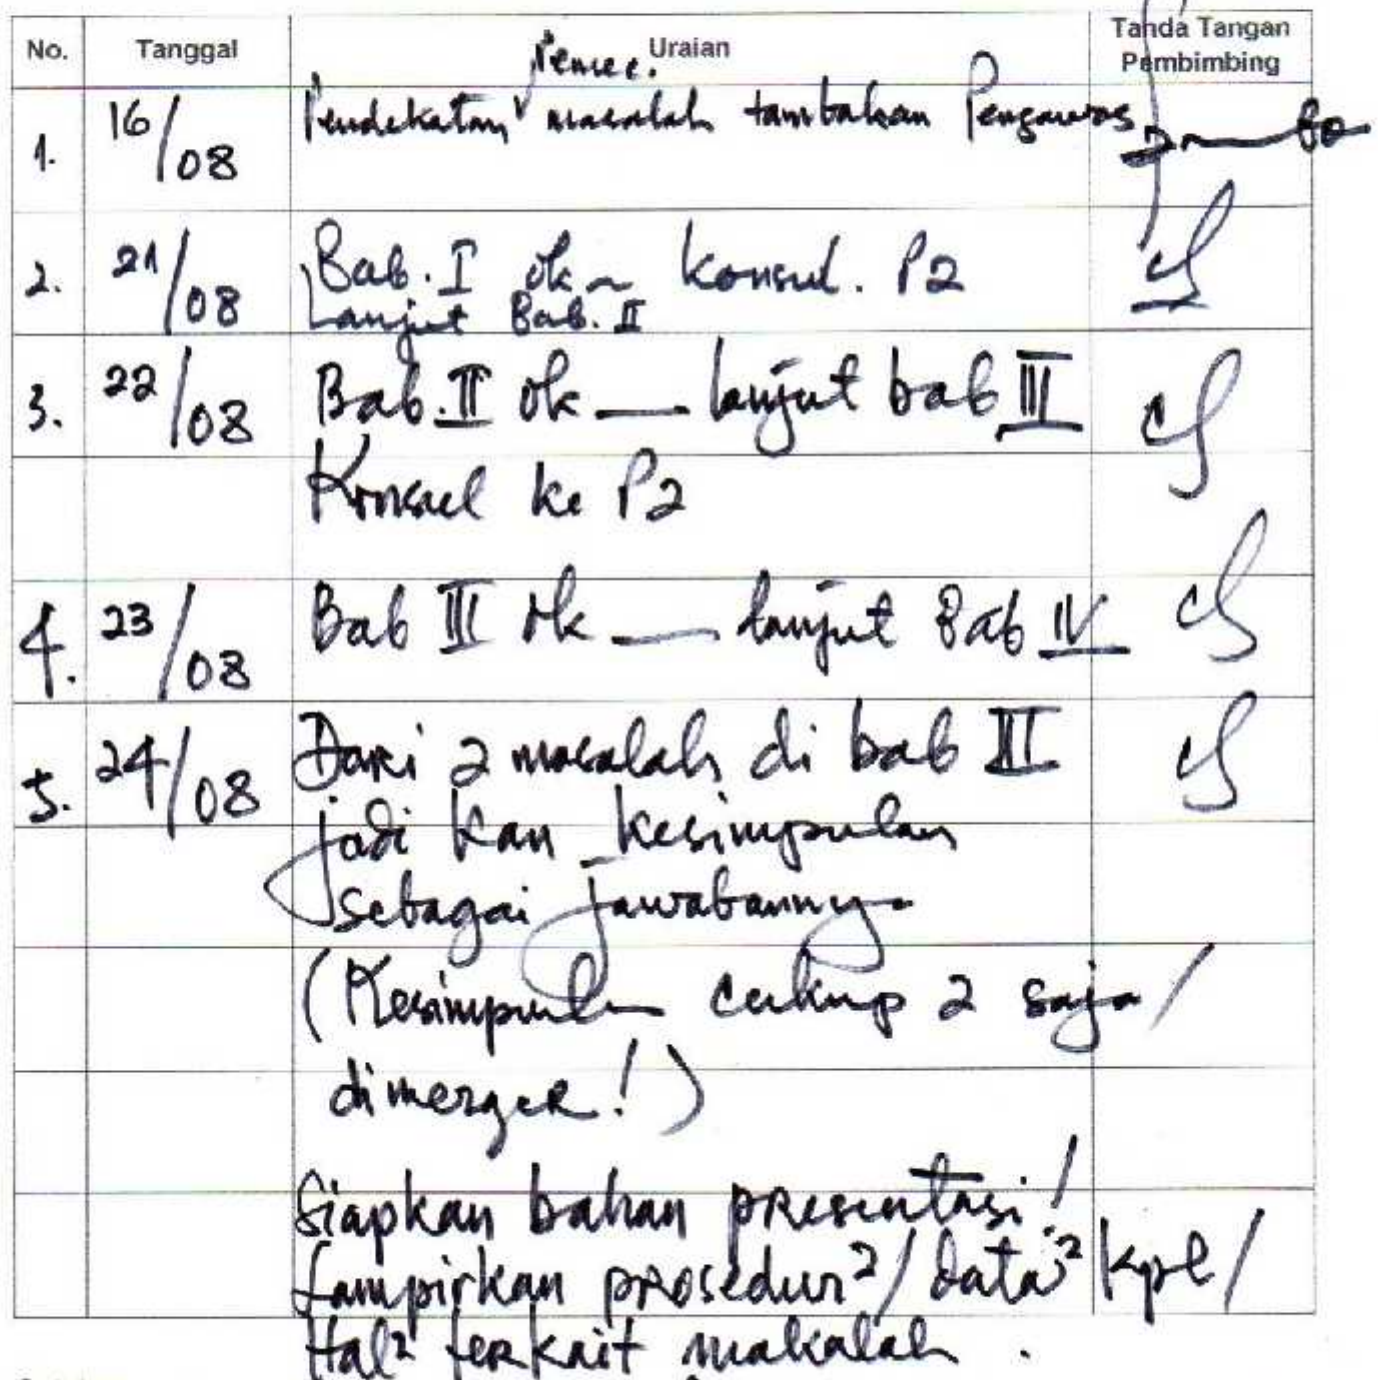 No. Tanggal Uraian Tanda Tangan Pembimbing
Pemec.
1. 16/08 Pendekatan masalah tambahan Pengawas
2. 21/08 Bab. I ok ~ konsul. P2
Lanjut Bab. II
3. 22/08 Bab. II ok — lanjut bab III
Konsul ke P2
4. 23/08 Bab III ok — lanjut Bab IV
5. 24/08 Dari 2 masalah di bab III
jadi kan kesimpulan
sebagai jawabannya
(Kesimpulan cukup 2 saja/
dimerger!)
Siapkan bahan presentasi!
Lampirkan prosedur²/data² kpl/
Hal² terkait makalah.